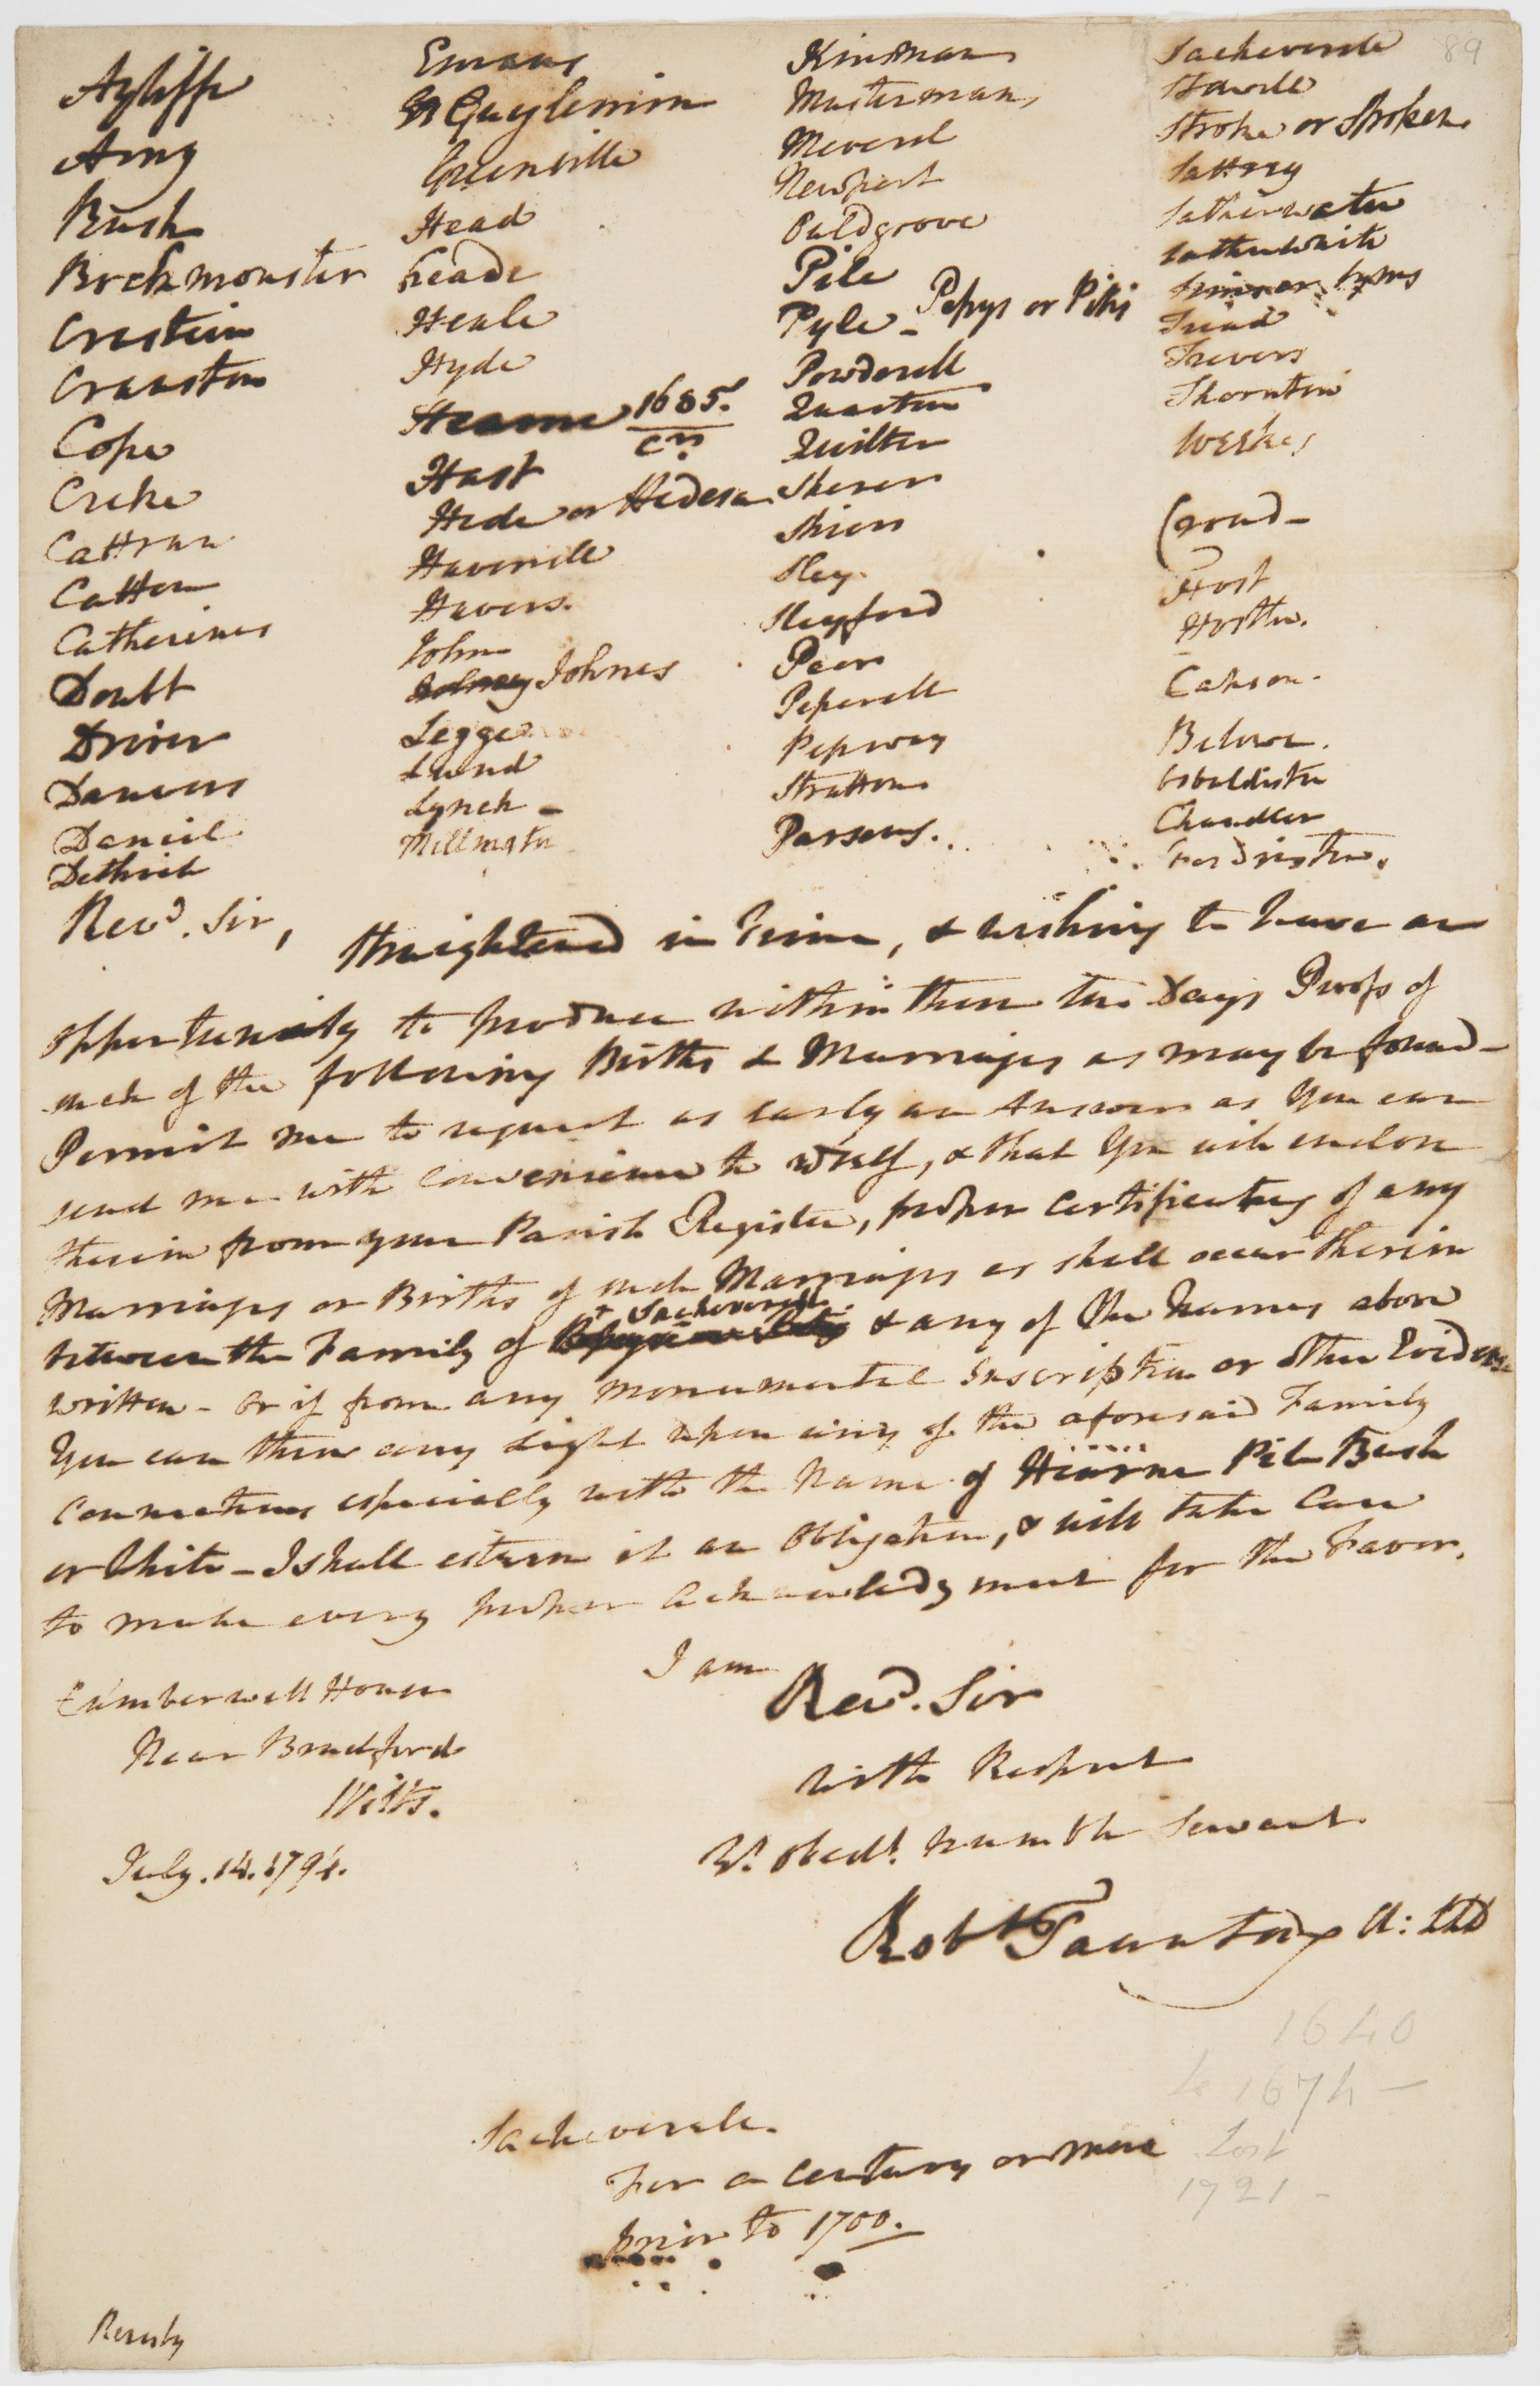 89
Ayliffe
Amy
Bush
Cranston
Cope
Creke
Cattran
Catton
Catherines
Doubt
Driver
Danvers
Daniel
Dethick
Emans
Greenville
Head
heade
Heale
Hyde
Hearne 1685.
Hast
Hede or Hedera
Haverell
Havers.
John
Johnes
Legge
Lund
Lynch -
Millington
Kinsman
Musterman,
Meverel
Newport
Puldgrove
Pile
Pyle - Pepys or Pikis
Powderell
Quarton
Quilter
Sherer
Shiers
Sley.
Sleyford
Peers
Peperell
Pepway
Stratton
Parsons.
Sacheverele
Stawell
Stroke or Stroken
Sattrey
Satherwater
Satherwhite
Friend
Trevers
Thornton
Weekes
Croud -
Host
Hosthe.
Cakson.
Belowe.
Osbaldiston
Chandler
Revd. Sir,
Straightened in Time, & wishing to have an
opportunity to produce within these ten Days Proofs of
such of the following Births & Marriages as may be found -
Permit me to request as early an Answer as You can
send me with convenience to yrself, & that You will enclose
therein from your Parish Register, proper Certificates of any
Marriages or Births of such Marriages as shall occur therein
between the Family of Sacheverell & any of the Names above
written - or if from any monumental Inscription or other Evidence
You can throw any Light upon any of the aforesaid Family
Connections especially with the Name of Hearne Pile Bush
or White - I shall esteem it an Obligation, & will take Care
to make every proper Acknowledgment for the Favor.
I am
Revd. Sir
with Respect
Yr. obedt. humble Servant
Robt Taunton
Cumberwell House
Near Bradford
Wilts.
July. 14. 1794.
1640
to 1674 -
Lost
1721 -
Sacheverele.
For a century or more
prior to 1700.